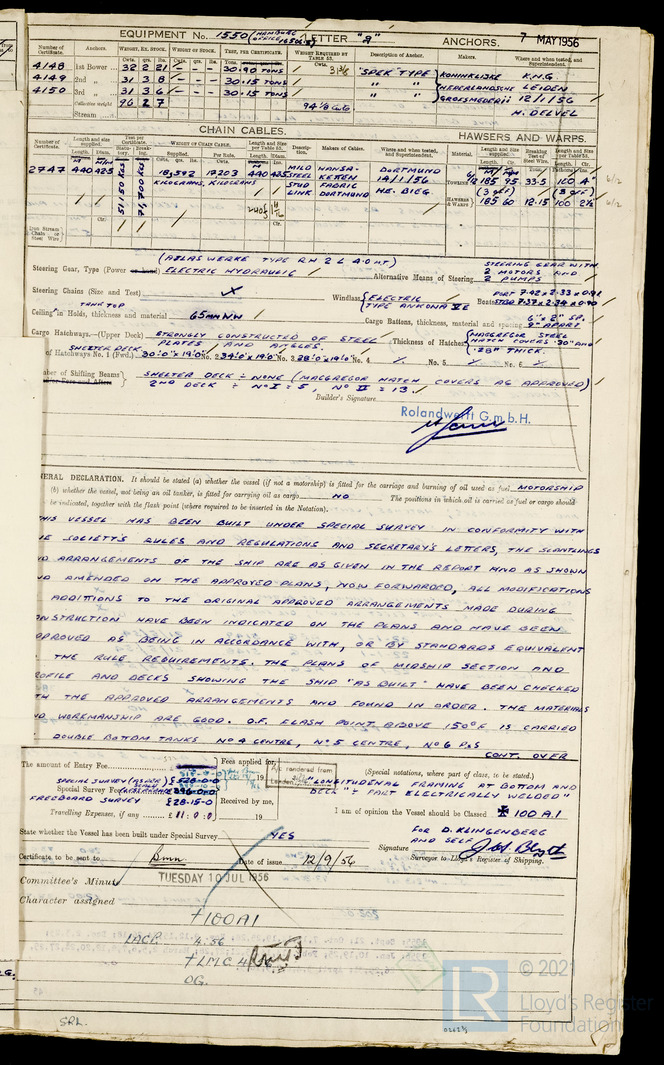 EQUIPMENT No. 1550 (HAMBURG OFFICE LETTER "2" ANCHORS. 7 MAY 1956
Number of Certificate. Anchors. WEIGHT, EX. STOCK. WEIGHT OF STOCK. TEST, PER CERTIFICATE. WEIGHT REQUIRED BY TABLE 53. Description of Anchor. Makers. Where and when tested, and Superintendent.
Cwts. qrs. lbs. Cwts. qrs. lbs. Tons. Cwts.
4148 1st Bower 32 2 21 - - - 30.90 TONS 31¾ "SPEK TYPE" KONINKLIJKE K.N.G
4149 2nd „ 31 3 8 - - - 30.15 TONS " " NEDERLANDSCHE LEIDEN
4150 3rd „ 31 3 6 - - - 30.15 TONS " " GROFSMEDERIJ 12/1/56
Collective weight 96 2 7 94¼ Cwts H. DELVEL
Stream
CHAIN CABLES. HAWSERS AND WARPS.
Number of Certificate. Length and size supplied. Test per Certificate. WEIGHT OF CHAIN CABLE. Length and Size per Table 53. Description. Makers of Cables. Where and when tested, and Superintendent. Material. Length and Size supplied. Breaking Test of Steel Wire. Length and Size per Table 53.
Length. Diam. Statutory. Breaking. Supplied. Per Rule. Length. Diam. Length. Cir. Tons. Fathoms. Cir.
2747 440 42.5 51,150 KGS 71,700 KGS 18,592 KILOGRAMS, 17203 KILOGRAMS 440 42.5 MILD STEEL STUD LINK HANSA-KETTEN FABRIC DORTMUND DORTMUND 14/1/56. HE. BIEG
TOWLINES 185 95 33.5 100 4"
HAWSERS & WARPS (3 OFF) 185 60 12.15 (3 OFF) 100 2½
Iron Stream Chain or Steel Wire
(ATLAS WERKE TYPE RH 2 L 4.0 MT)
Steering Gear, Type (Power or hand) ELECTRIC HYDRAULIC Alternative Means of Steering STEERING GEAR WITH 2 MOTORS AND 2 PUMPS
Steering Chains (Size and Test) Windlass ELECTRIC TYPE ANKONA Boats PORT 7.42 x 2.33 x 0.92 STBD 7.37 x 2.34 x 0.90
TANK TOP
Ceiling in Holds, thickness and material 65mm NW Cargo Battens, thickness, material and spacing 6" x 2" SP. 9" APART
Cargo Hatchways.—(Upper Deck) STRONGLY CONSTRUCTED OF STEEL PLATES AND ANGLES. Thickness of Hatches MACGREGOR STEEL HATCH COVERS .30" AND .28" THICK.
SHELTER DECK
of Hatchways No. 1 (Fwd.) 30'0" x 19'0" No. 2 34'6" x 19'0" No. 3 28'0" x 19'0" No. 4 No. 5 No. 6
Number of Shifting Beams SHELTER DECK ÷ NONE (MACGREGOR HATCH COVERS AS APPROVED)
2ND DECK ÷ No I = 5, No II = 13.
Builder's Signature
Rolandwerft G.m.b.H.
ERAL DECLARATION. It should be stated (a) whether the vessel (if not a motorship) is fitted for the carriage and burning of oil used as fuel MOTORSHIP
(b) whether the vessel, not being an oil tanker, is fitted for carrying oil as cargo NO The positions in which oil is carried as fuel or cargo should
be indicated, together with the flash point (where required to be inserted in the Notation).
HIS VESSEL HAS BEEN BUILT UNDER SPECIAL SURVEY IN CONFORMITY WITH
E SOCIETY'S RULES AND REGULATIONS AND SECRETARY'S LETTERS, THE SCANTLINGS
D ARRANGEMENTS OF THE SHIP ARE AS GIVEN IN THE REPORT AND AS SHOWN
D AMENDED ON THE APPROVED PLANS, NOW FORWARDED, ALL MODIFICATIONS
ADDITIONS TO THE ORIGINAL APPROVED ARRANGEMENTS MADE DURING
NSTRUCTION HAVE BEEN INDICATED ON THE PLANS AND HAVE BEEN
PPROVED AS BEING IN ACCORDANCE WITH, OR BY STANDARDS EQUIVALENT
THE RULE REQUIREMENTS. THE PLANS OF MIDSHIP SECTION AND
OFILE AND DECKS SHOWING THE SHIP "AS BUILT" HAVE BEEN CHECKED
TH THE APPROVED ARRANGEMENTS AND FOUND IN ORDER. THE MATERIALS
D WORKMANSHIP ARE GOOD. O.F. FLASH POINT ABOVE 150°F IS CARRIED
DOUBLE BOTTOM TANKS No 4 CENTRE, No 5 CENTRE, No 6 P&S
CONT. OVER
The amount of Entry Fee Fees applied for, (Special notations, where part of class, to be stated.)
A/c rendered from London
"LONGITUDINAL FRAMING AT BOTTOM AND
DECK" "÷ PART ELECTRICALLY WELDED"
SPECIAL SURVEY
Special Survey Fee
FREEBOARD SURVEY £28.15.0 Received by me, I am of opinion the Vessel should be Classed ✠ 100 A.1
Travelling Expenses, if any £11:0:0 19
State whether the Vessel has been built under Special Survey YES FOR D. KLINGENBERG AND SELF
Signature
Certificate to be sent to Bmn Date of issue 12/9/56 Surveyor to Lloyd's Register of Shipping.
Committee's Minute TUESDAY 10 JUL 1956
Character assigned
+100A1
LACP. 4.56
+LMC 4.56
OG.
SRL.
LR
© 2021
Lloyd's Register
Foundation